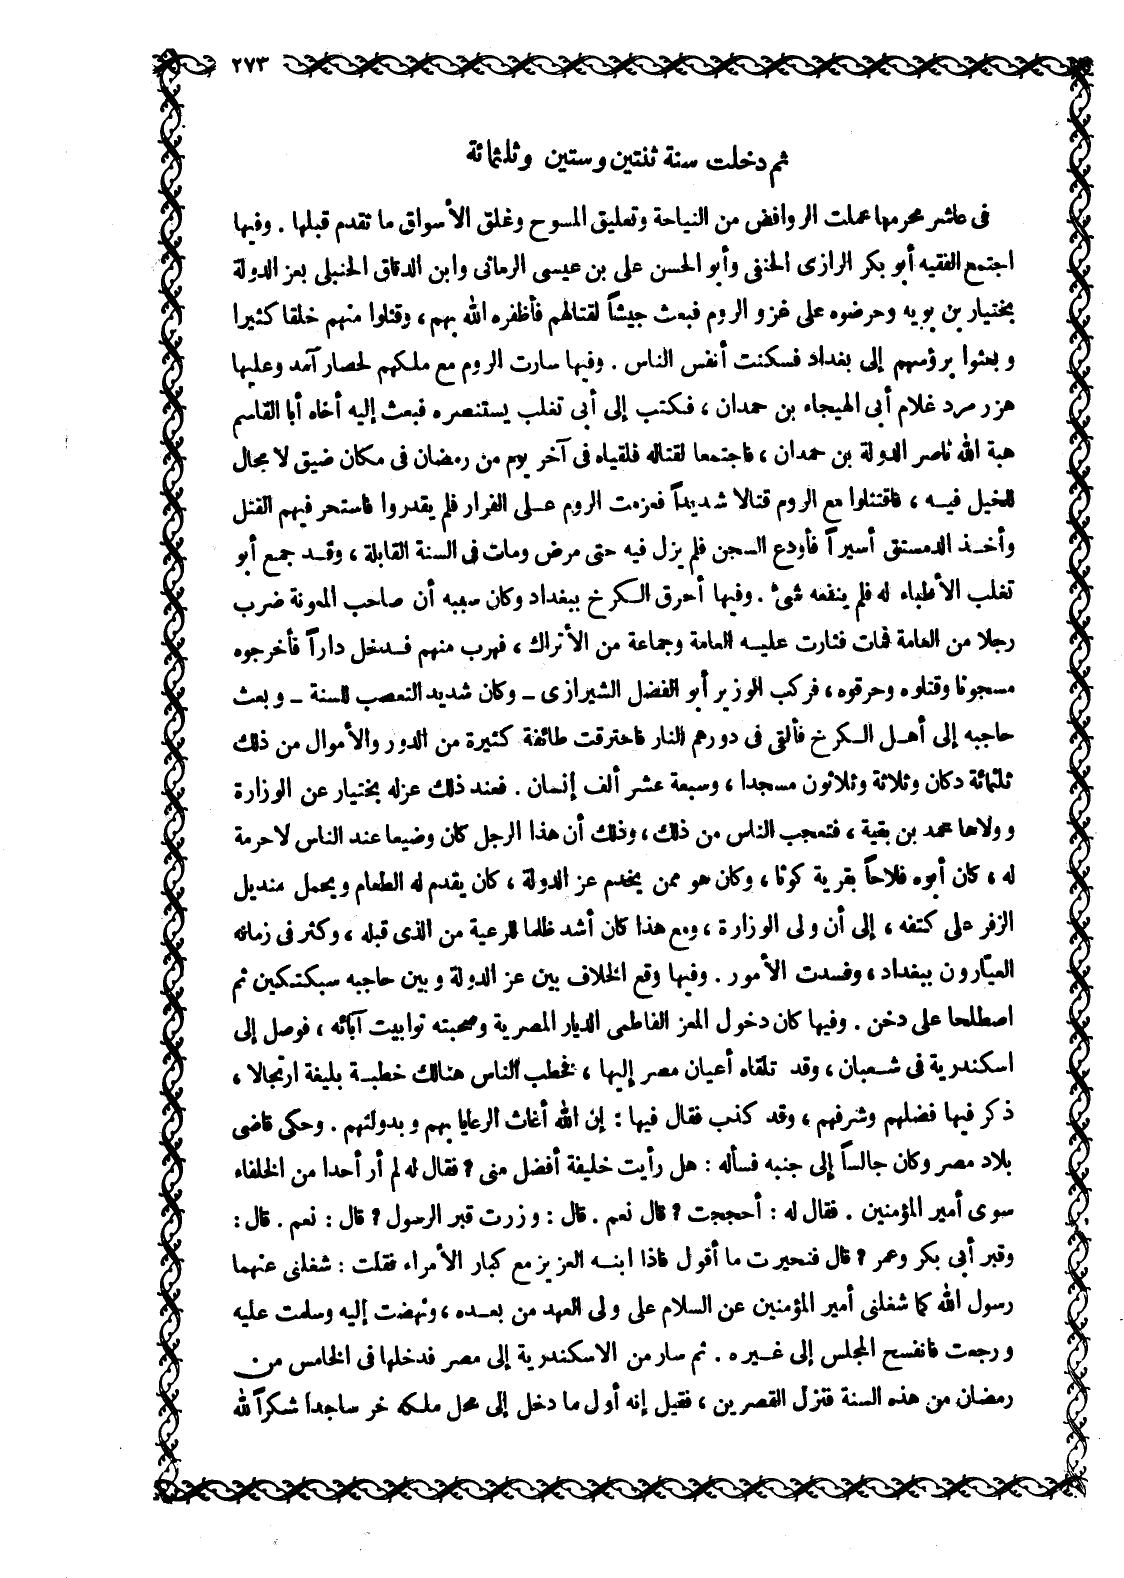 ٢٧٣
ثم دخلت سنة ثنتين وستين وثلثمائة
فى عاشر محرمها عملت الروافض من النياحة وتعليق المسوح وغلق الأسواق ما تقدم قبلها . وفيها
اجتمع الفقيه أبو بكر الرازى الحنفى وأبو الحسن على بن عيسى الرمانى وابن الدقاق الحنبلى بعز الدولة
بختيار بن بويه وحرضوه على غزو الروم فبعث جيشاً لقتالهم فأظفره الله بهم ، وقتلوا منهم خلقا كثيرا
وبعثوا برؤسهم إلى بغداد فسكنت أنفس الناس . وفيها سارت الروم مع ملكهم لحصار آمد وعليها
هزر مرد غلام أبى الهيجاء بن حمدان ، فكتب إلى أبى تغلب يستنصره فبعث إليه أخاه أبا القاسم
هبة الله ناصر الدولة بن حمدان ، فاجتمعا لقتاله فلقياه فى آخر يوم من رمضان فى مكان ضيق لا مجال
للخيل فيه ، فاقتتلوا مع الروم قتالا شديداً فعزمت الروم على الفرار فلم يقدروا فاستحر فيهم القتل
وأخذ الدمستق أسيراً فأودع السجن فلم يزل فيه حتى مرض ومات فى السنة القابلة ، وقد جمع أبو
تغلب الأطباء له فلم ينفعه شئ . وفيها أحرق الكرخ ببغداد وكان سببه أن صاحب المعونة ضرب
رجلا من العامة فمات فثارت عليه العامة وجماعة من الأتراك ، فهرب منهم فدخل داراً فأخرجوه
مسجونا وقتلوه وحرقوه ، فركب الوزير أبو الفضل الشيرازى ــ وكان شديد التعصب للسنة ــ وبعث
حاجبه إلى أهل الكرخ فألقى فى دورهم النار فاحترقت طائفة كثيرة من الدور والأموال من ذلك
ثلثمائة دكان وثلاثة وثلاثون مسجدا ، وسبعة عشر ألف إنسان . فعند ذلك عزله بختيار عن الوزارة
وولاها محمد بن بقية ، فتعجب الناس من ذلك ، وذلك أن هذا الرجل كان وضيعا عند الناس لا حرمة
له ، كان أبوه فلاحاً بقرية كوثا ، وكان هو ممن يخدم عز الدولة ، كان يقدم له الطعام ويحمل منديل
الزفر على كتفه ، إلى أن ولى الوزارة ، ومع هذا كان أشد ظلما للرعية من الذى قبله ، وكثر فى زمانه
العيّارون ببغداد ، وفسدت الأمور . وفيها وقع الخلاف بين عز الدولة وبين حاجبه سبكتكين ثم
اصطلحا على دخن . وفيها كان دخول المعز الفاطمى الديار المصرية وصحبته توابيت آبائه ، فوصل إلى
اسكندرية فى شعبان ، وقد تلقاه أعيان مصر إليها ، فخطب الناس هنالك خطبة بليغة ارتجالا ،
ذكر فيها فضلهم وشرفهم ، وقد كذب فقال فيها : إن الله أغاث الرعايا بهم وبدولتهم . وحكى قاضى
بلاد مصر وكان جالساً إلى جنبه فسأله : هل رأيت خليفة أفضل منى ؟ فقال له لم أر أحدا من الخلفاء
سوى أمير المؤمنين . فقال له : أحججت ؟ قال نعم . قال : وزرت قبر الرسول ؟ قال : نعم . قال :
وقبر أبى بكر وعمر ؟ قال فتحيرت ما أقول فاذا ابنه العزيز مع كبار الأمراء فقلت : شغلنى عنهما
رسول الله كما شغلنى أمير المؤمنين عن السلام على ولى العهد من بعده ، ونهضت إليه وسلمت عليه
ورجعت فانفسح المجلس إلى غيره . ثم سار من الاسكندرية إلى مصر فدخلها فى الخامس من
رمضان من هذه السنة فنزل القصرين ، فقيل إنه أول ما دخل إلى محل ملكه خر ساجدا شكراً لله